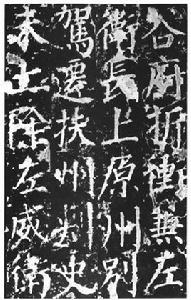 谷府折衝兼左
衛長上原州別
駕遷扶州刺史
未上除左威衛